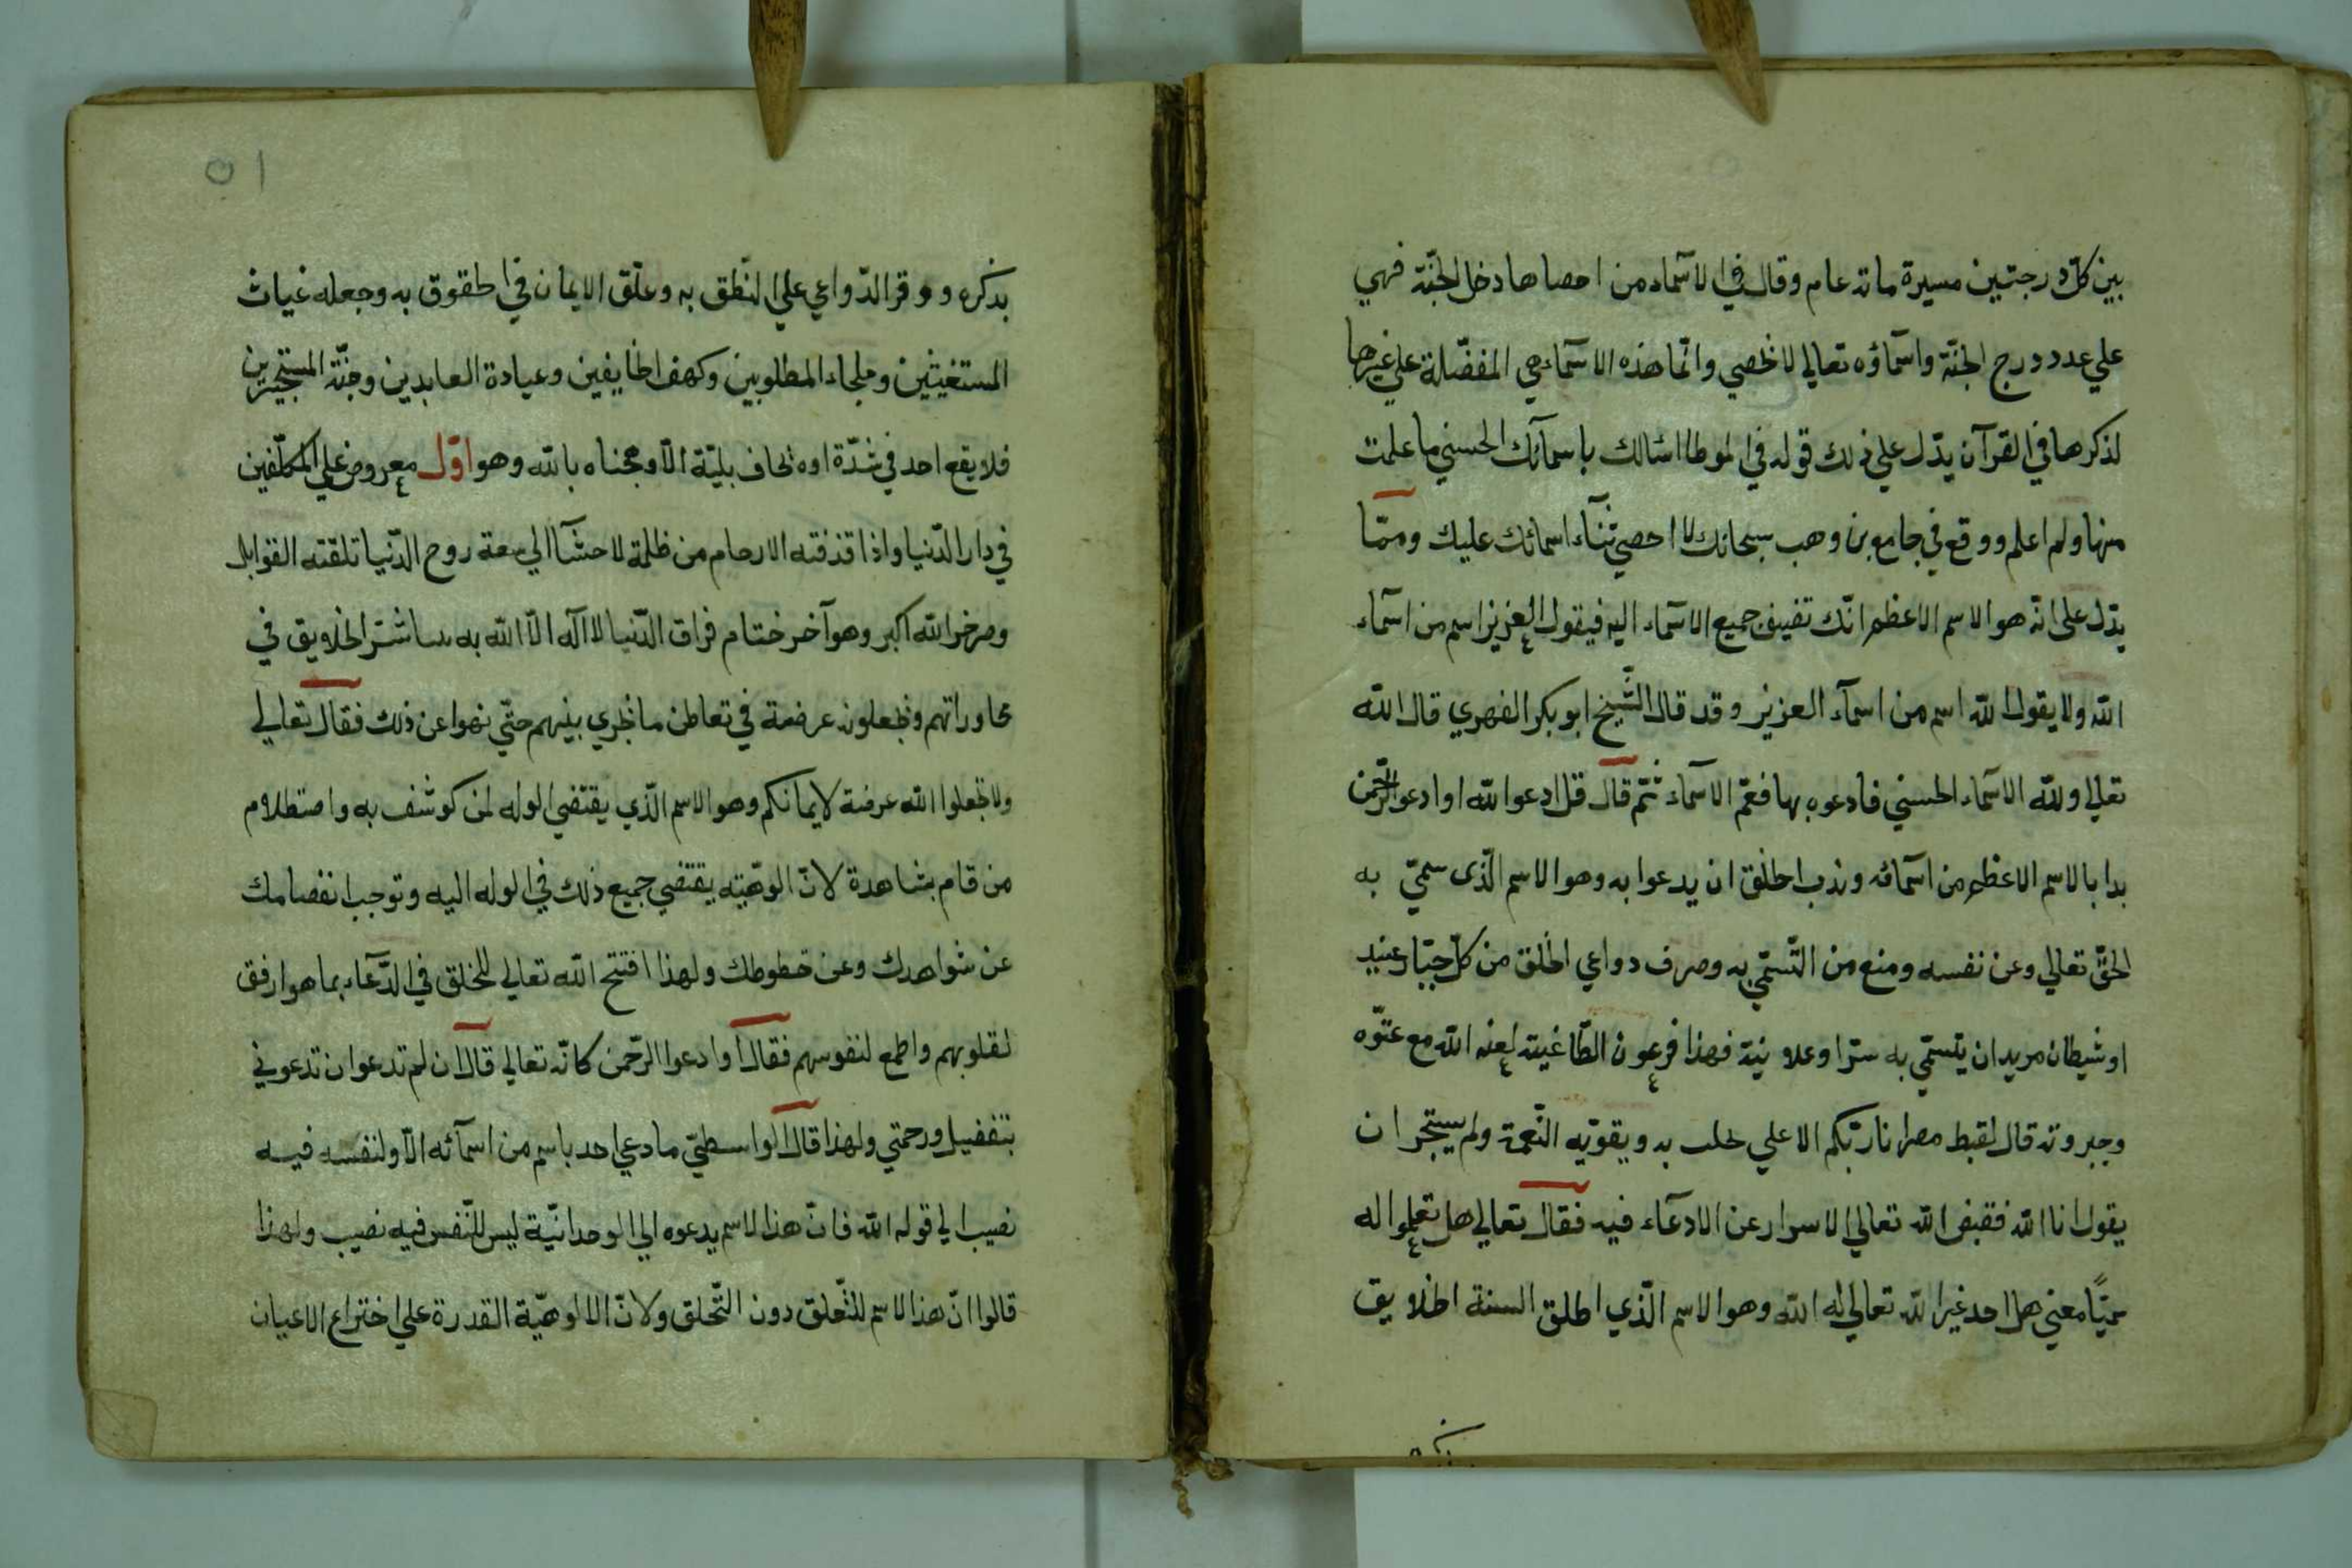 بين كلّ درجتين مسيرة مائة عام وقال في الاسماء من احصاها دخل الجنّة فهي
علي عدد درج الجنّة واسماؤه تعالي لا تحصي وانّما هذه الاسماء هي المفضّلة علي غيرها
لذكرها في القرآن يدّل علي ذلك قوله في الموطا اسالك باسمآئك الحسني ما علمت
منها ولم اعلم ووقع في جامع بن وهب سبحانك لا احصي ثنآء اسمائك عليك وممّا
يدّل على انّه هو الاسم الاعظم انّك تضيف جميع الاسماء اليه فيقول العزيز اسم من اسماء
الله ولا يقول الله اسم من اسمآء العزيز وقد قال الشّيخ ابو بكر الفهري قال الله
تعالي ولله الاسماء الحسني فادعوه بها فعمّ الاسماء ثمّ قال قل ادعوا الله او ادعوا الرّحمن
بدا بالاسم الاعظم من اسمائه وندب الخلق ان يدعوا به وهو الاسم الّذى سمّي به
الحقّ تعالي وعن نفسه ومنع من التّسمّي به وصرف دواعي الخلق من كلّ جبّار عنيد
او شيطان مريد ان يتسمّي به سرّا وعلانية فهذا فرعون الطّاغية لعنه الله مع عتوّه
وجبروته قال لقبط مصر انا ربّكم الاعلي به ويقوّيه النّعمة ولم يستجر ان
يقول انا الله فقبض الله تعالي الاسرار عن الادعآء فيه فقال تعالي هل تعلموا له
سميّا معني هل احد غير الله تعالي له الله وهو الاسم الّذي اطلق السنة الخلايق
بذكره
بذكره ووقر الدّواعي علي النّطق به وعلّق الايمان في الحقوق به وجعله غياث
المستغيثين وملجاء المطلوبين وكهف الخايفين وعيادة العابدين وجنّة المستجيرين
فلا يقع احد في شدّة او تحاف بليّة الّا وهجناه بالله وهو اوّل معروض علي المكلّفين
في دار الدّنيا واذا قذفته الارحام من ظلمة لاحشآ الي سعة روح الدّنيا تلقته القوابل
وصرخو الله اكبر وهو آخر ختام فراق الدّنيا لا اله الّا الله به الخلايق في
محاوراتهم ويجعلون عرضة في تعاطن ما يجري بينهم حتّي نهوا عن ذلك فقال تعالي
ولا تجعلوا الله عرضة لايمانكم وهو الاسم الّذي يقتضي الوله لمن كوشف به واصتطلام
من قام بشاهدة لانّ الوهيّته يقتضي جميع ذلك في الوله اليه وتوجب انفصامك
عن شواهدك وعن حظوظك ولهذا افتتح الله تعالي للخلق في الدّعآء بما هو ارفق
لقلوبهم واطمع لنفوسهم فقال او ادعوا الرّحمن كانّه تعالي قال ان لم تدعوا ن تدعوني
بتفضيل ورحمتي ولهذا قال الواسطيّ ما دعي احد باسم من اسمآئه الّا ولنفسه فيه
نصيب الي قوله الله فانّ هذا لاسم يدعوه الي الوحدانيّة ليس للنّفس فيه نصيب ولهذا
قالوا انّ هذا لاسم للتّعلق دون التّخلق ولانّ الالوهيّة القدرة علي اختراع الاعيان
٥١